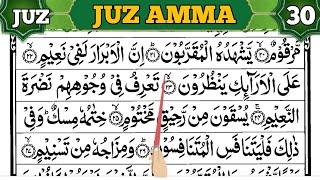 JUZ JUZ AMMA 30
مَّرْقُومٌ ﴿٢٠﴾ يَشْهَدُهُ الْمُقَرَّبُونَ ﴿٢١﴾ إِنَّ الْأَبْرَارَ لَفِي نَعِيمٍ ﴿٢٢﴾
عَلَى الْأَرَائِكِ يَنْظُرُونَ ﴿٢٣﴾ تَعْرِفُ فِي وُجُوهِهِمْ نَضْرَةَ
النَّعِيمِ ﴿٢٤﴾ يُسْقَوْنَ مِنْ رَحِيقٍ مَخْتُومٍ ﴿٢٥﴾ خِتَامُهُ مِسْكٌ وَفِي
ذَلِكَ فَلْيَتَنَافَسِ الْمُتَنَافِسُونَ ﴿٢٦﴾ وَمِزَاجُهُ مِنْ تَسْنِيمٍ ﴿٢٧﴾